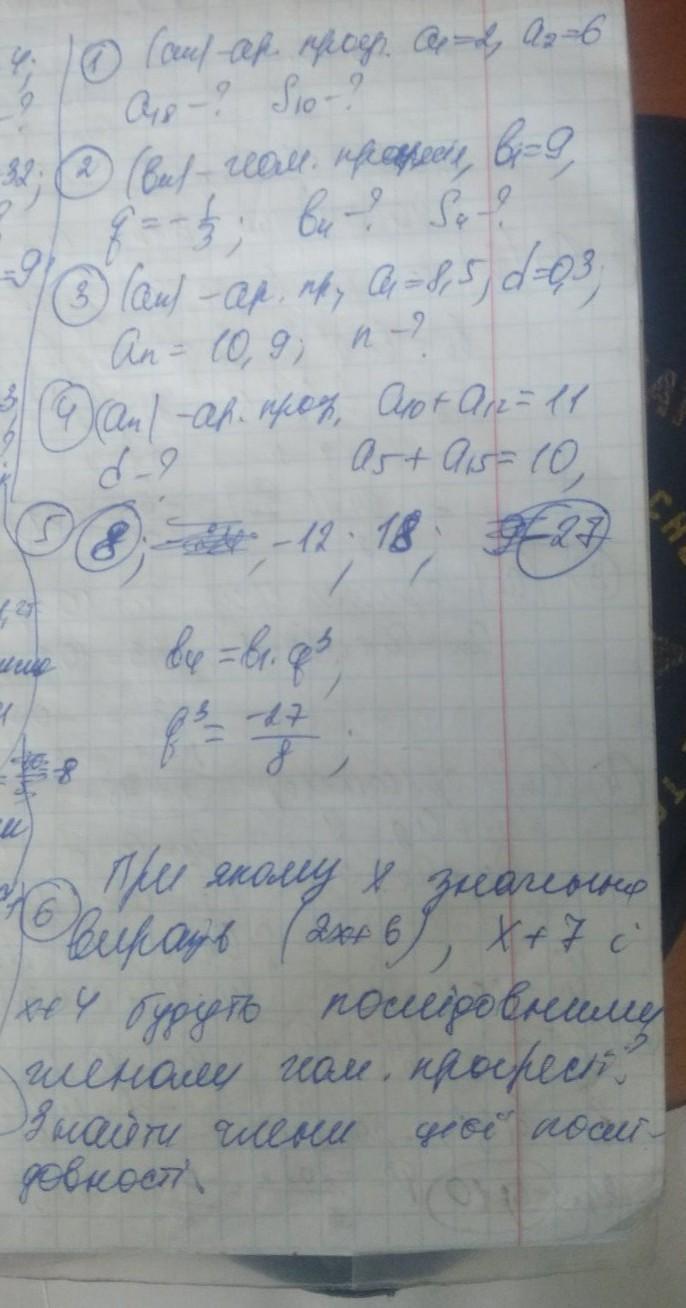 ① (an) - ар. прогр. a1=2, a2=6
a18 - ? S10 - ?
② (bn) - геом. прогресія, b1=9,
q = -1/3; b4 - ? S4 - ?
③ (an) - ар. пр, a1=8,5, d=0,3;
an = 10,9; n - ?
④ (an) - ар. прогр, a10 + a12 = 11
d - ? a5 + a15 = 10,
⑤ 8; , -12; 18; -27
b4 = b1 · q³;
q³ = -27/8;
⑥ При якому x значення
виразів (2x+6), x+7 і
x+4 будуть послідовними
членами геом. прогресії?
Знайти члени цієї послі-
довності.
4;
-?
-32;
=9
3